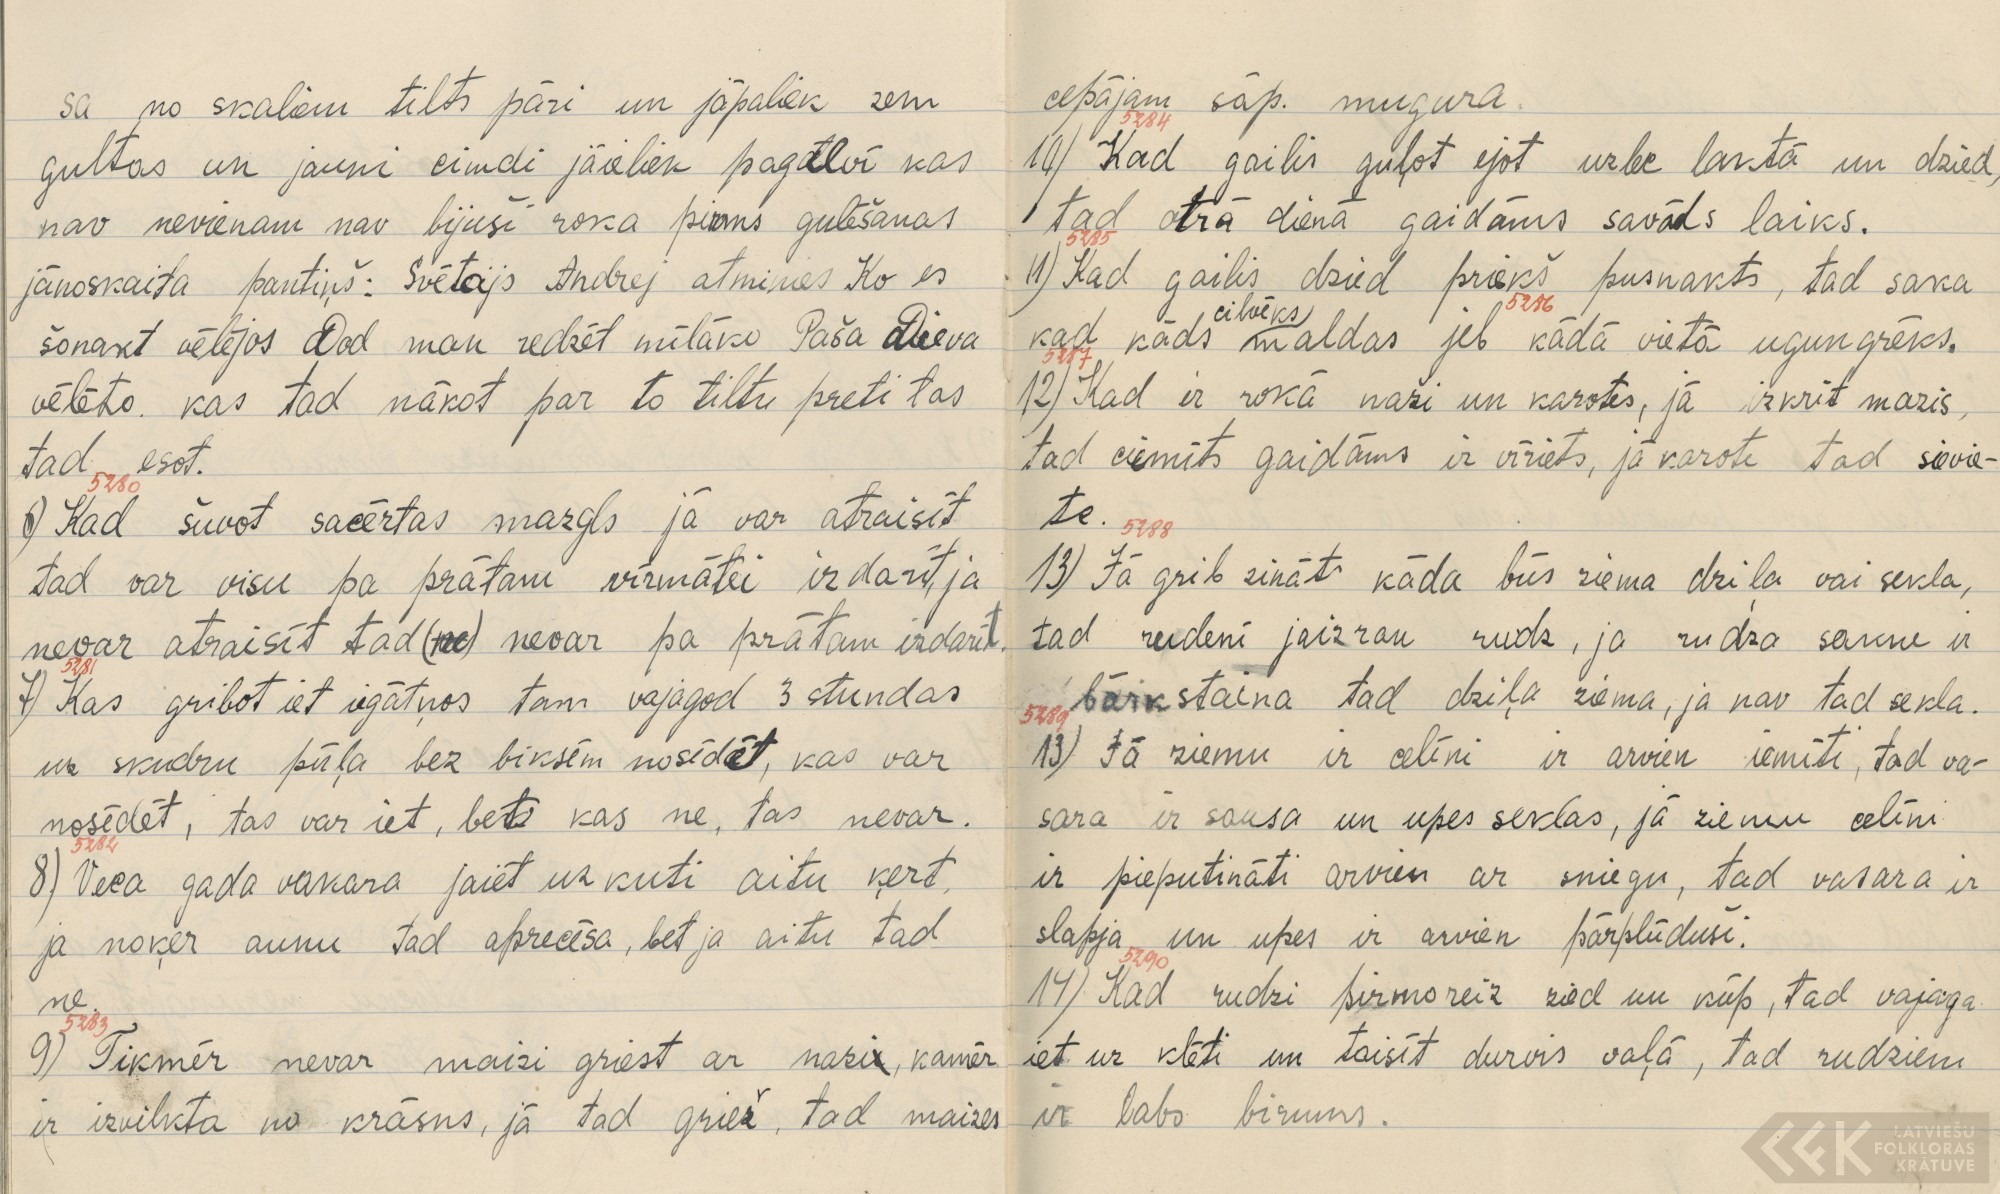 sa no skaliem tilts pāri un jāpaliek zem
gultas un jauni cimdi jāieliek pagalvī kas
nav nevienam nav bijuši roka pirms gulēšanas
jānoskaita pantiņš: Svētajs Andrej atminies Ko es
šonakt vēlējos Dod man redzēt mīļāko Paša Dieva
vēlēto. kas tad nākot par to tiltu preti tas
tad esot.
5280
6) Kad šuvot sacērtas mazgls jā var atraisīt
tad var visu pa prātam vīrmātei izdarīt, ja
nevar atraisīt tad (ne) nevar pa prātam izdarīt.
5281
7) Kas gribot iet igātņos tam vajagod 3 stundas
uz skudru pūļa bez biksēm nosēdēt, kas var
nosēdēt, tas var iet, bets kas ne, tas nevar.
5282
8) Veca gada vakara jaiet uz kuti aitu ķert,
ja noķer aunu tad aprecēsa, bet ja aitu tad
ne.
5283
9) Tikmēr nevar maizi griest ar nazi, kamēr
ir izvilkta no krāsns, jā tad griež, tad maizes
cepājam sāp. mugura.
5284
10) Kad gailis guļot ejot uzlec laktā un dzied,
tad otrā dienā gaidāms savāds laiks.
5285
11) Kad gailis dzied priekš pusnakts, tad saka
kad kāds cilvēks maldas jeb 5286 kādā vietā ugungrēks.
5287
12) Kad ir rokā nazi un karotes, jā izkrīt nazis,
tad ciemiņš gaidāms ir vīriets, jā karote tad sievie-
te.
5288
13) Jā grib zināt kāda būs ziema dziļa vai sekla,
tad rudenī jaizrau rudz, ja rudza sakne ir
bārkstaina tad dziļa ziema, ja nav tad sekla.
5289
13) Jā ziemu ir celiņi ir arvien iemīti, tad va-
sara ir sausa un upes seklas, jā ziemu celiņi
ir pieputināti arvien ar sniegu, tad vasara ir
slapja un upes ir arvien pārplūduši.
5290
14) Kad rudzi pirmoreiz zied un kūp, tad vajaga
iet uz klēti un taisīt durvis vaļā, tad rudziem
ir labs birums.
LATVIEŠU
FOLKLORAS
KRĀTUVE